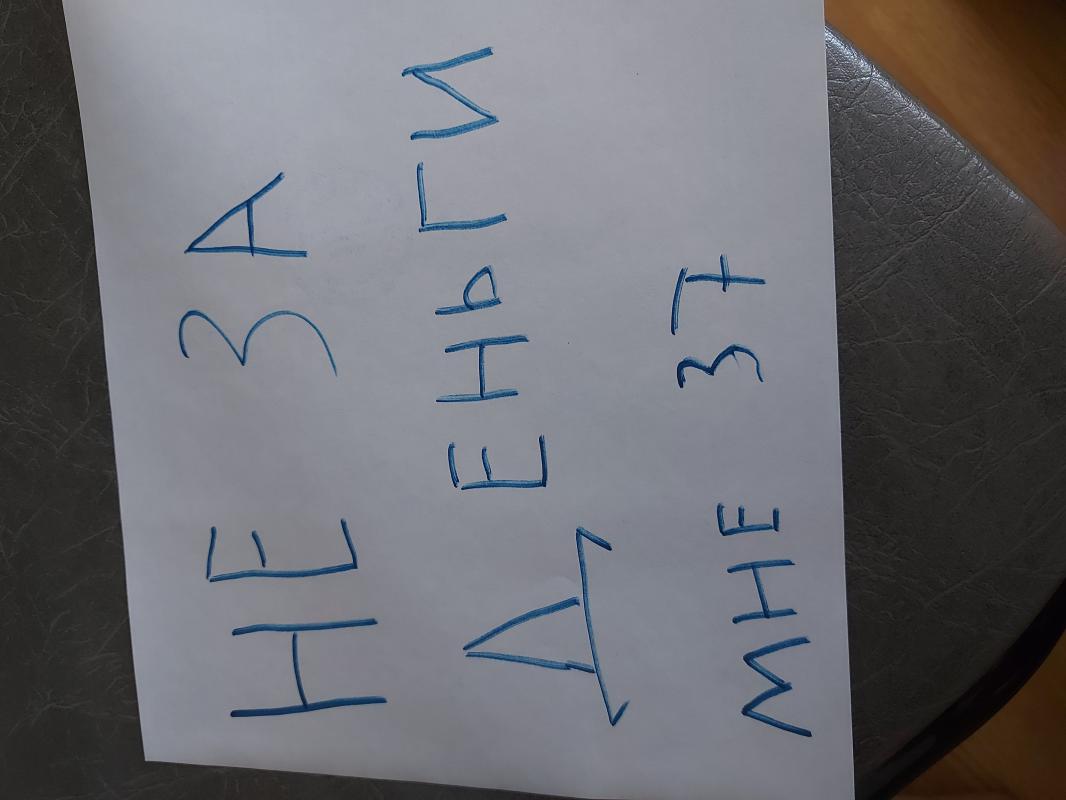 НЕ ЗА
ДЕНЬГИ
МНЕ 37